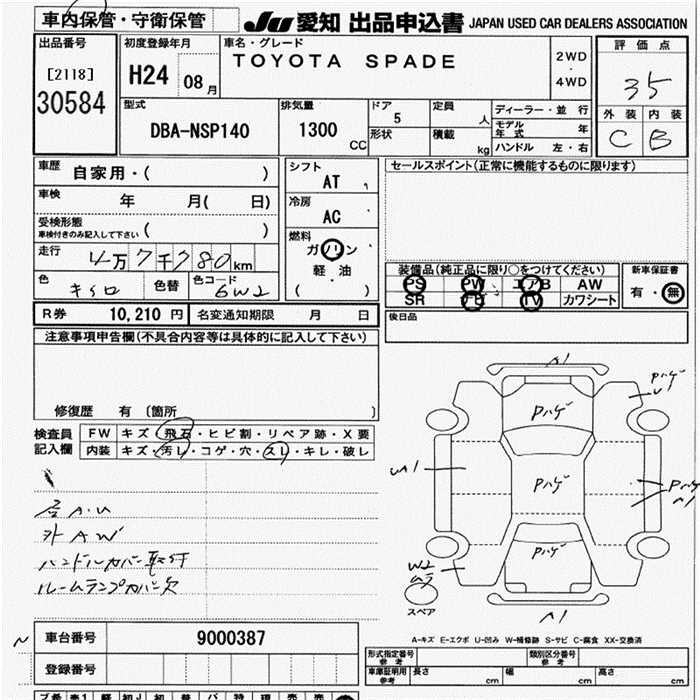 車内保管・守衛保管
JU 愛知 出品申込書 JAPAN USED CAR DEALERS ASSOCIATION
出品番号
[2118]
30584
初度登録年月
H24 08月
車名・グレード
TOYOTA SPADE
2WD
・
4WD
評価点
35
外装 内装
C B
型式
DBA-NSP140
排気量
1300
CC
ドア
5
形状
定員
人
積載
kg
ディーラー・並行
モデル年式 年
ハンドル 左・右
車歴 自家用・( )
車検 年 月( 日)
受検形態
車検付きのみ記入して下さい ( )
走行 4万7千780km
色 キイロ 色替 色コード 6W2
シフト
AT
冷房
AC
燃料
ガソリン
軽・油
( )
セールスポイント(正常に機能するものに限ります)
装備品(純正品に限り○をつけてください)
PS PW エアB AW
SR ナビ TV カワシート
新車保証書
有・無
後日品
R券 10,210円 名変通知期限 月 日
注意事項申告欄(不具合内容等は具体的に記入して下さい)
修復歴 有〔箇所 〕
検査員記入欄
FW キズ・飛石・ヒビ割・リペア跡・X要
内装 キズ・汚レ・コゲ・穴・スレ・キレ・破レ
A.U
外AW
ハンドルカバー取付
ルームランプカバー欠
A1
Pハゲ
Pハゲ
Pハゲ
Pハゲ
U
UA1
Pハゲ
A1
W2
スペア
A1
A-キズ E-エクボ U-凹み W-補修跡 S-サビ C-腐食 XX-交換済
車台番号 9000387
登録番号
形式指定番号
参考
類別区分番号
参考
車庫証明用
参考
長さ cm 幅 cm 高さ cm